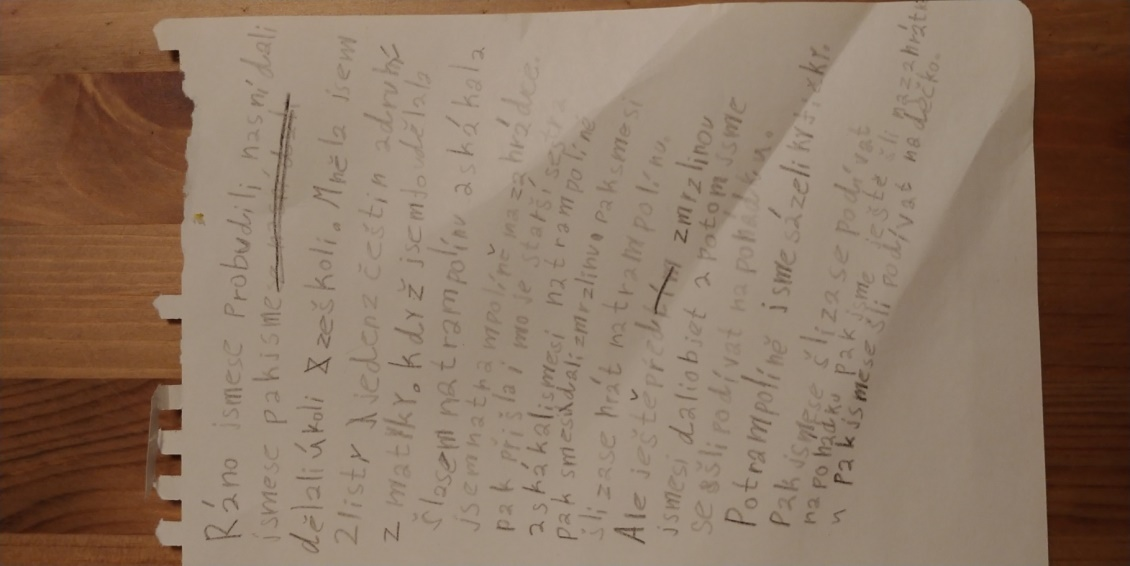 Ráno jsmese probudili, nasnídali
jsmese pakjsme
dělaliúkoli zeškoli. Mněla jsem
2listy jedenz češtin adruhý
z matyky. když jsemtodělala
šlasem natrampolínu askákala
jsemnatrampolíně nazahrádce.
pak přišlai moje starší sestra
askákalismesi natrampolíně
pak smesidalizmrzlinu. paksmesi
šli zase hrát natrampolínu.
Ale ještěpředtím zmrzlinou
jsmesi daliobjet apotom jsme
se šlipodívat napohádku.
Potrampolíně jsmesázelikrsičky.
Pakjsmese šlizasepodívat
napohádku pakjsme ještě šli nazahrátk
u pakjsmese šli podívat nadéčko.